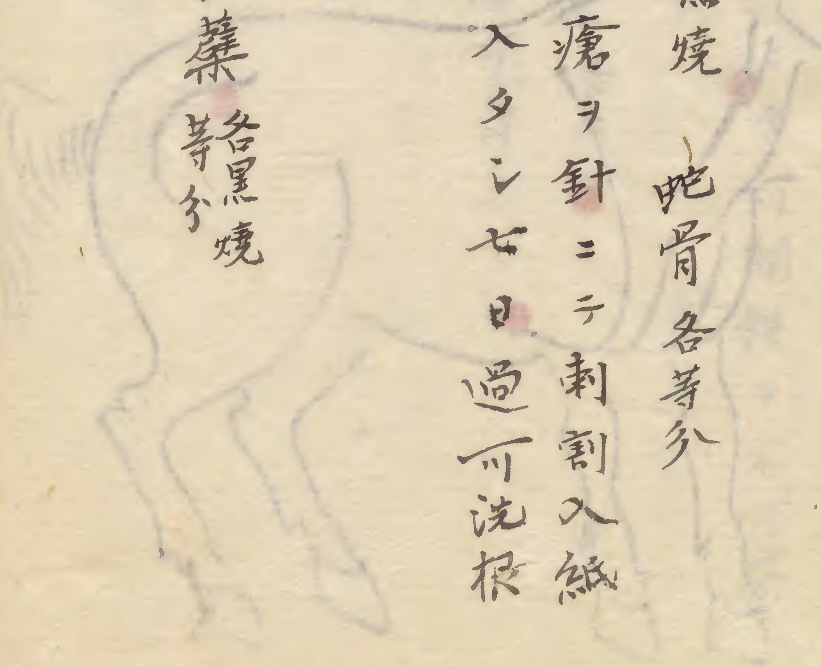 燒 蛇骨 各等分
瘡ヲ針ニテ刺割入紙
入タシ七日過可洗根
蘗
各黒燒
等分